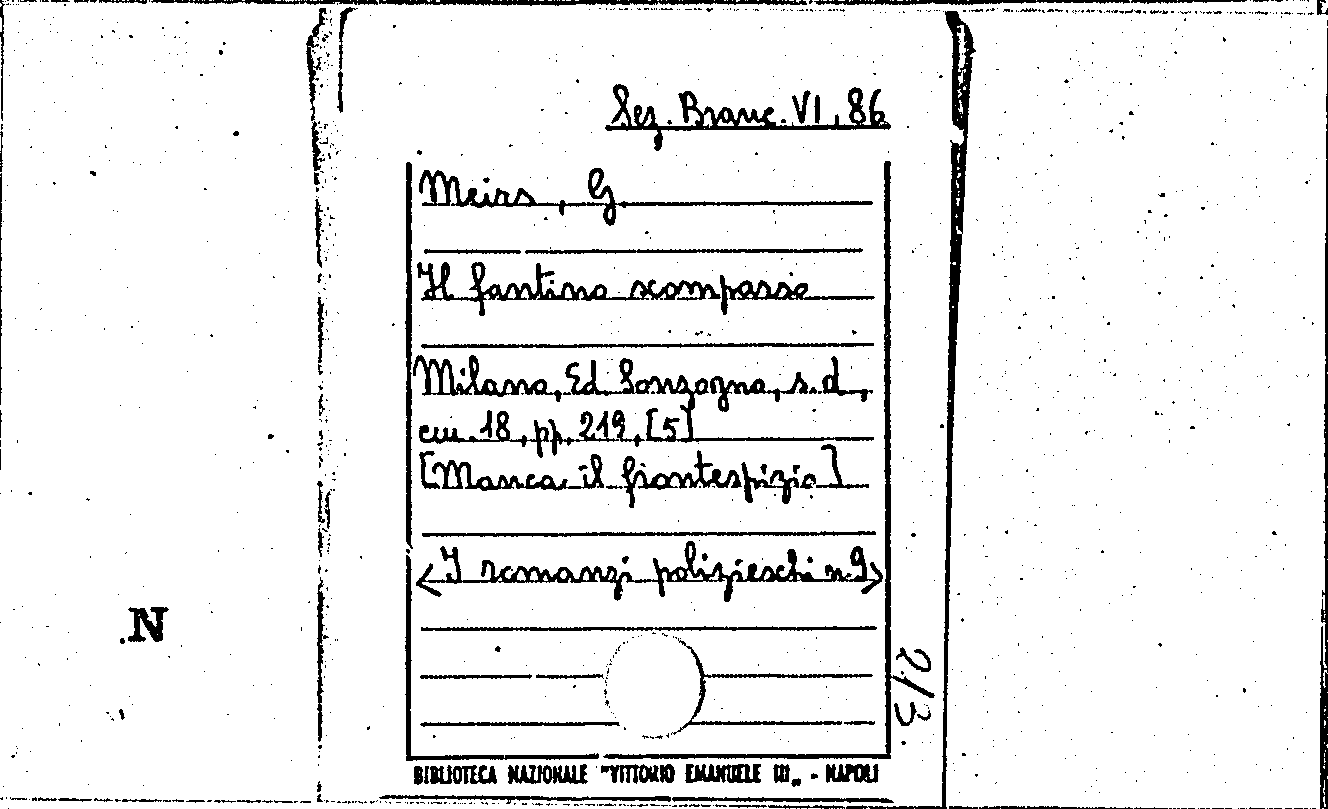 Sez. Branc. VI, 86
Meirs, G.
Il fantino scomparso
Milano, Ed. Sonzogno, s.d.,
cm. 18, pp. 219, [5]
[Manca il frontespizio]
<I romanzi polizieschi n.9>
2/3
N
BIBLIOTECA NAZIONALE "VITTORIO EMANUELE III„ - NAPOLI